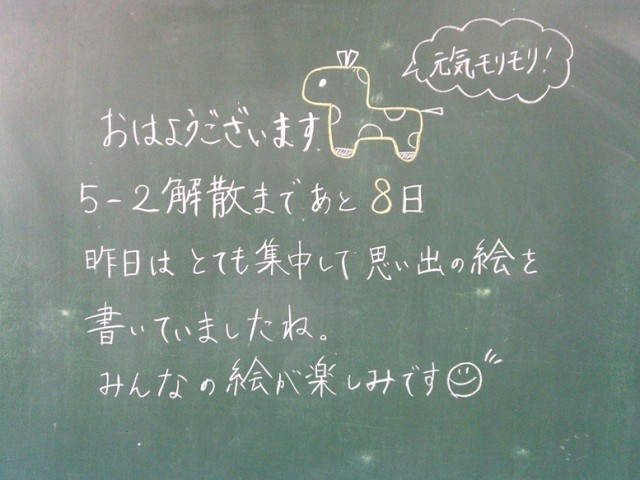 元気モリモリ!
おはようございます
5-2解散まであと8日
昨日はとても集中して思い出の絵を
書いていましたね。
みんなの絵が楽しみです